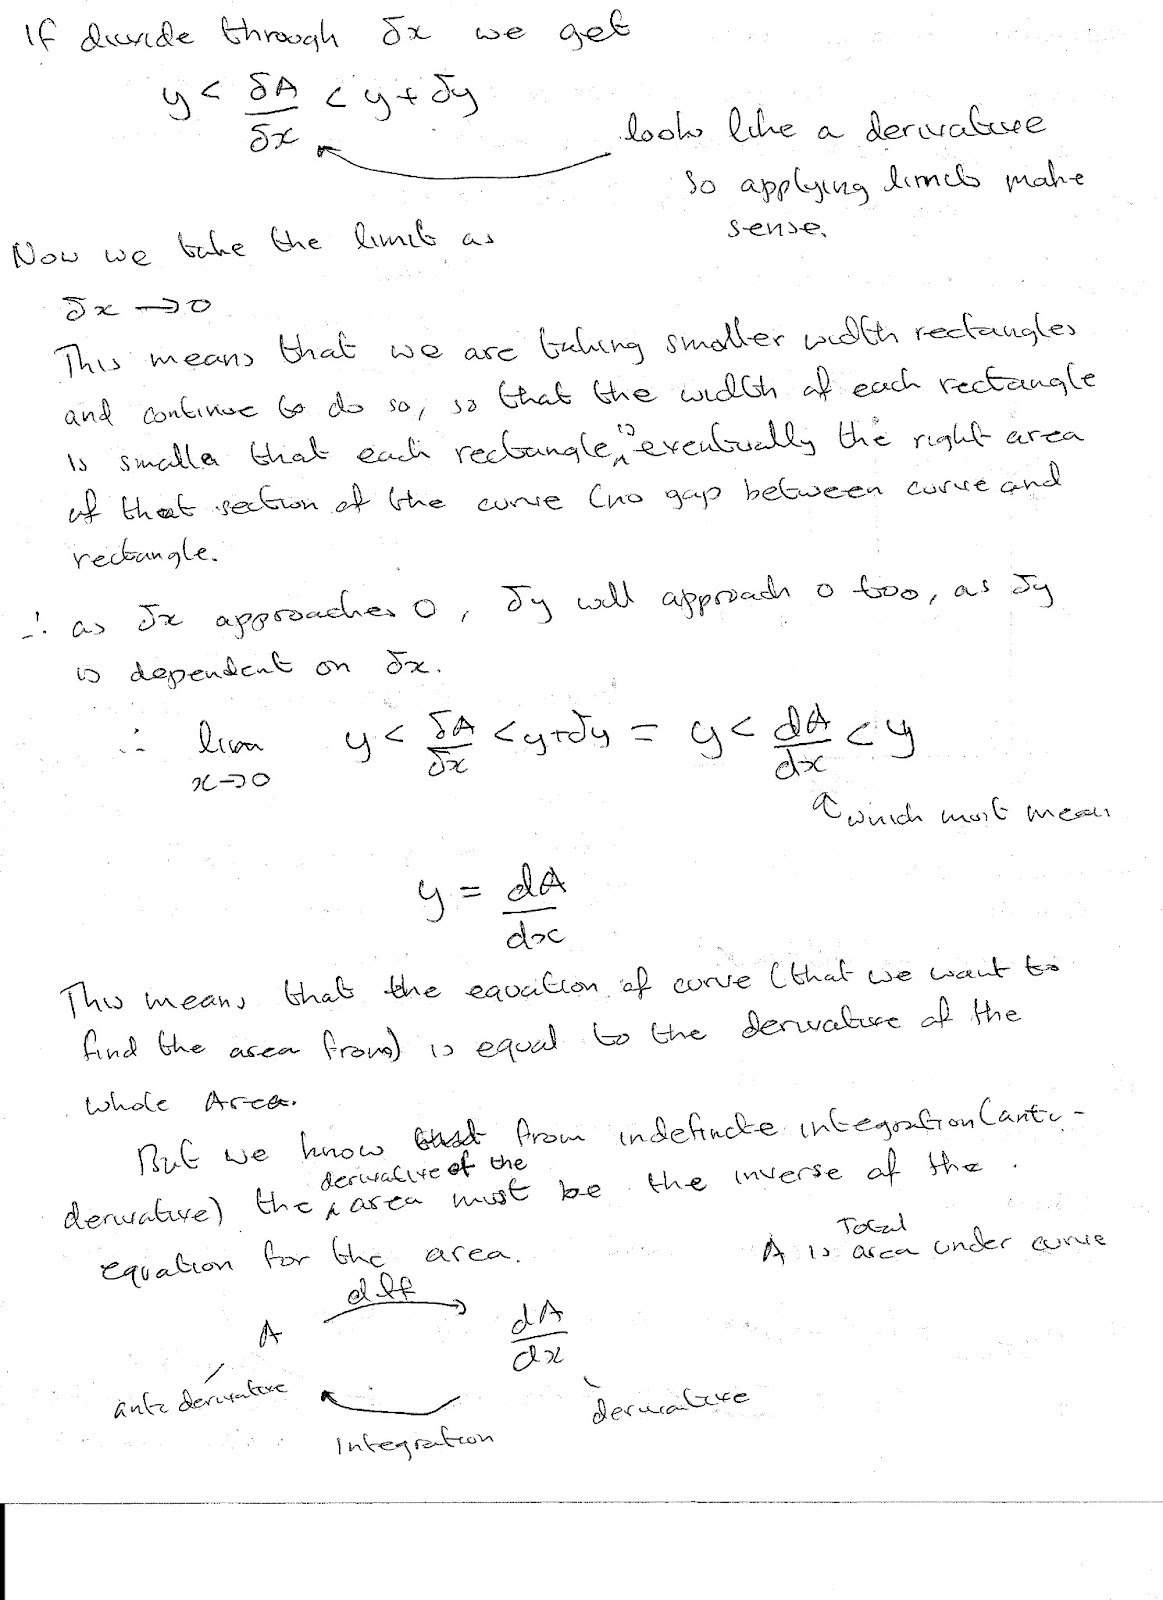 If divide through δx we get
y < δA/δx < y + δy
looks like a derivative
so applying limits make
sense.
Now we take the limit as
δx → 0
This means that we are taking smaller width rectangles
and continue to do so, so that the width of each rectangle
is smaller that each rectangle is eventually the right area
of that section of the curve (no gap between curve and
rectangle.
∴ as δx approaches 0, δy will approach 0 too, as δy
is dependent on δx.
∴ lim x→0 y < δA/δx < y+δy = y < dA/dx < y
which must mean
y = dA/dx
This means that the equation of curve (that we want to
find the area from) is equal to the derivative of the
whole Area.
But we know from indefinite integration (anti-
derivative) the derivative of the area must be the inverse of the
equation for the area.
A is Total area under curve
diff
A dA/dx
anti derivative
derivative
Integration